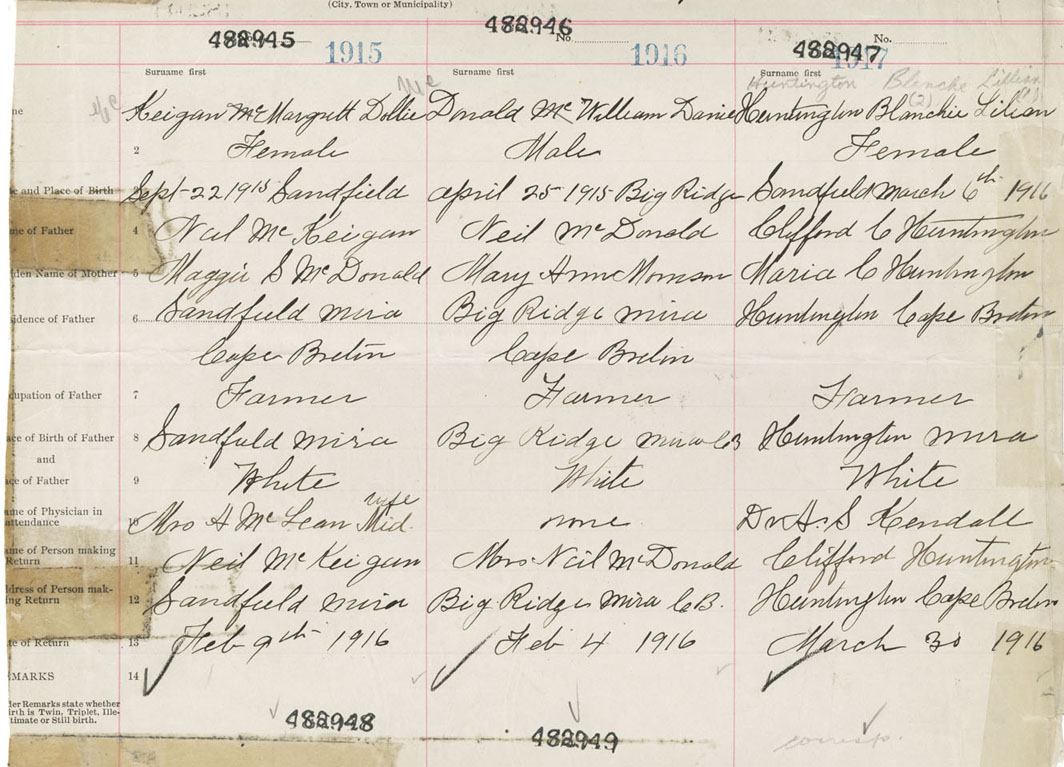 (City, Town or Municipality)
482945 1915 482946 No. 1916 482947 No. 1917
Surname first Surname first Surname first
Mc Mc Huntington Blanche Lillian
(2) (1)
me Keigan Mc Margrett Dollie Donald Mc William Daniel Huntington Blanchie Lilian
2 Female Male Female
e and Place of Birth 3 Sept-22 1915 Sandfield april 25 1915 Big Ridge Sandfield March 6th 1916
me of Father 4 Neil Mc Keigan Neil McDonald Clifford C Huntington
iden Name of Mother 5 Maggie S McDonald Mary Ann Morrison Maria C Huntington
idence of Father 6 Sandfield mira Big Ridge mira Huntington Cape Breton
Cape Breton Cape Breton
upation of Father 7 Farmer Farmer Farmer
ace of Birth of Father 8 Sandfield mira Big Ridge mira CB Huntington mira
and
ce of Father 9 White White White
wife
ame of Physician in attendance 10 Mrs A McLean Mid none Dr A. S Kendall
me of Person making Return 11 Neil McKeigan Mrs Neil McDonald Clifford Huntington
ddress of Person mak-ing Return 12 Sandfield mira Big Ridge Mira C.B. Huntington Cape Breton
te of Return 13 Feb 9th 1916 Feb 4 1916 March 30 1916
MARKS 14
der Remarks state whether
irth is Twin, Triplet, Ille-
timate or Still birth.
482948 482949 corresp.